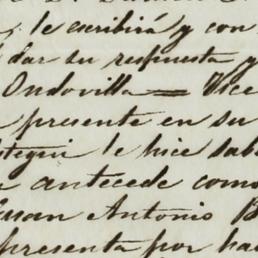 le escribirá y con
dar su respuesta y
Ondovilla = Vice
presente en su
tegui le hice sab
antecede como
Juan Antonio B
presenta por hac